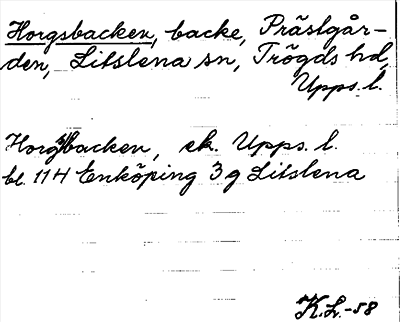 Horgsbacken, backe, Prästgår-
den, Litslena sn, Trögds hd,
Upps. l.
Horgsbacken, ek. Upps. l.
bl. 114 Enköping 3g Litslena
K.L.-58